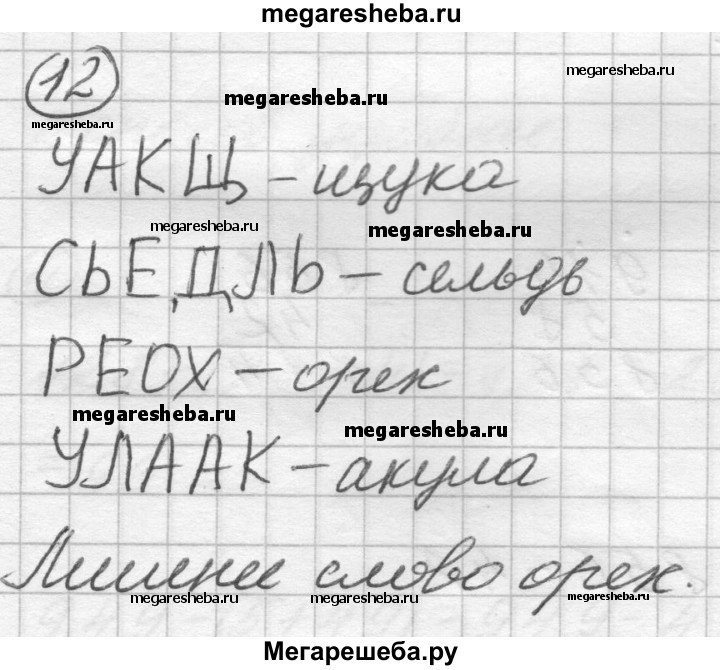 megaresheba.ru
12
megaresheba.ru
megaresheba.ru
megaresheba.ru
УАКЩ – щука
megaresheba.ru
megaresheba.ru
СЬЕДЛЬ – сельдь
РЕОХ – орех
megaresheba.ru
megaresheba.ru
УЛААК – акула
Лишнее слово орех.
megaresheba.ru
megaresheba.ru
megaresheba.ru
Мегарешеба.ру